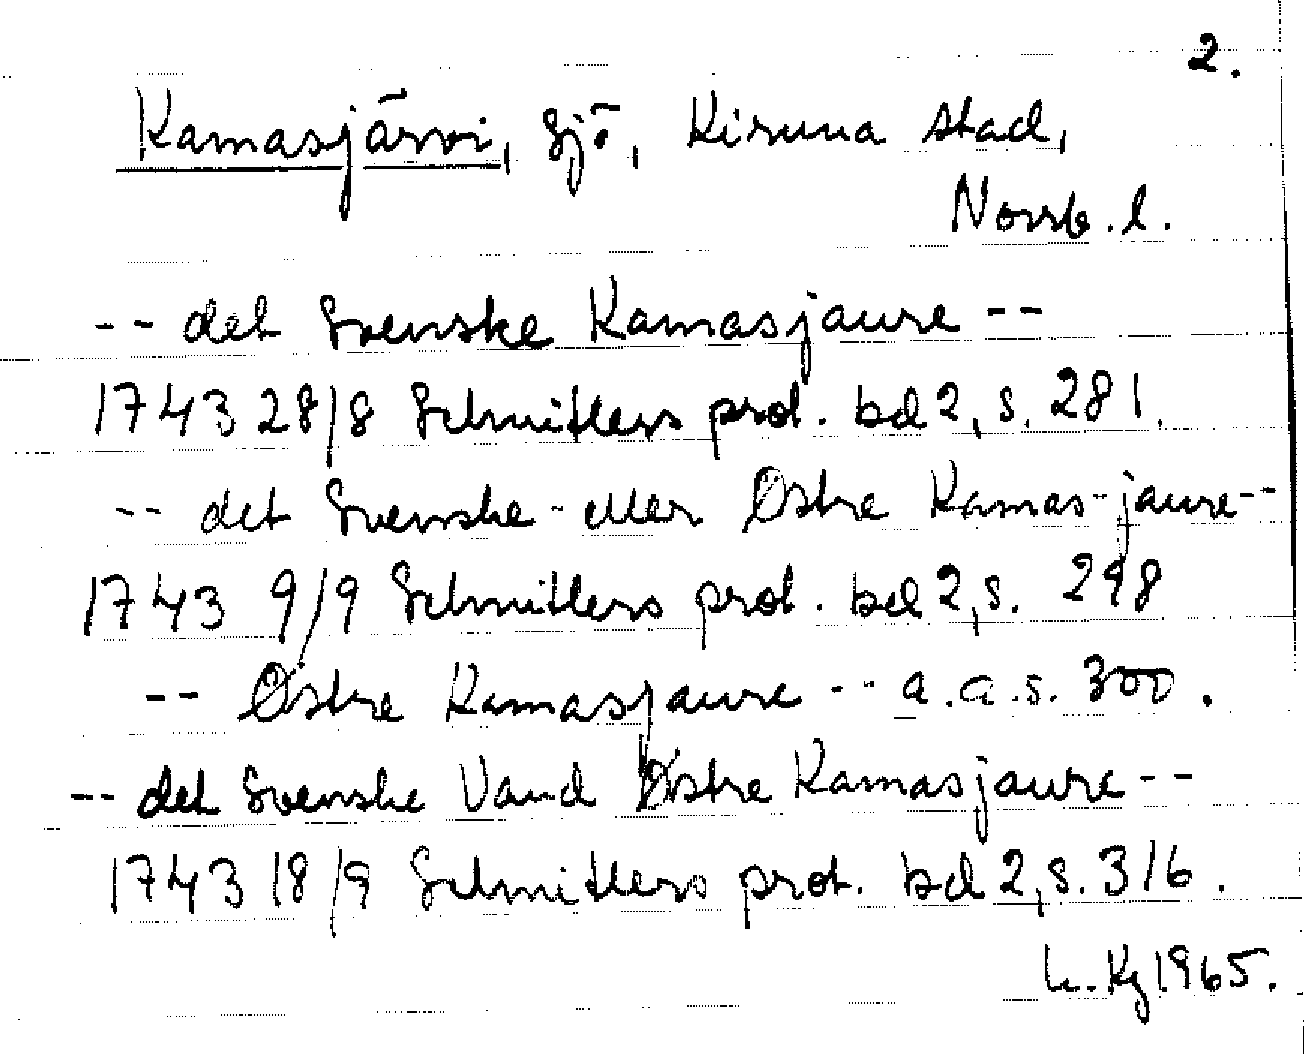 2.
Kamasjärvi, sjö, Kiruna stad,
Norrb. l.
-- det Svenske Kamasjaure --
1743 28/8 Schnitlers prot. bd 2, s. 281.
-- det Svenske- eller Østre Kamas-jaure--
1743 9/9 Schnitlers prot. bd 2, s. 298
-- Østre Kamasjaure -- a.a.s. 300.
-- det Svenske Vand Østre Kamasjaure --
1743 18/9 Schnitlers prot. bd 2, s. 316.
Kg 1965.